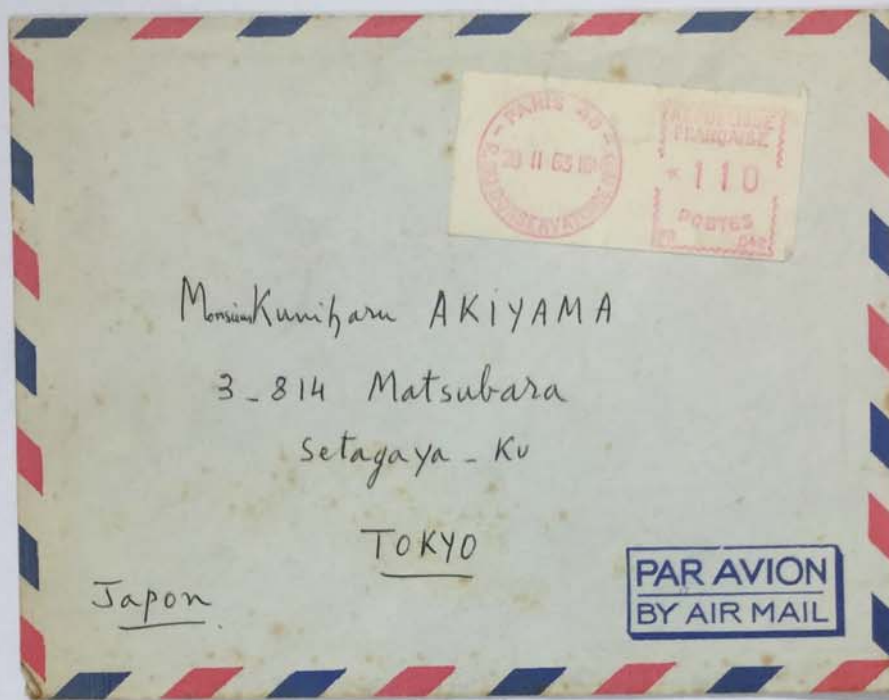 PARIS
20 II 63
RÉPUBLIQUE
FRANÇAISE
110
POSTES
Monsieur Kuniharu AKIYAMA
3_814 Matsubara
Setagaya_Ku
TOKYO
Japon
PAR AVION
BY AIR MAIL